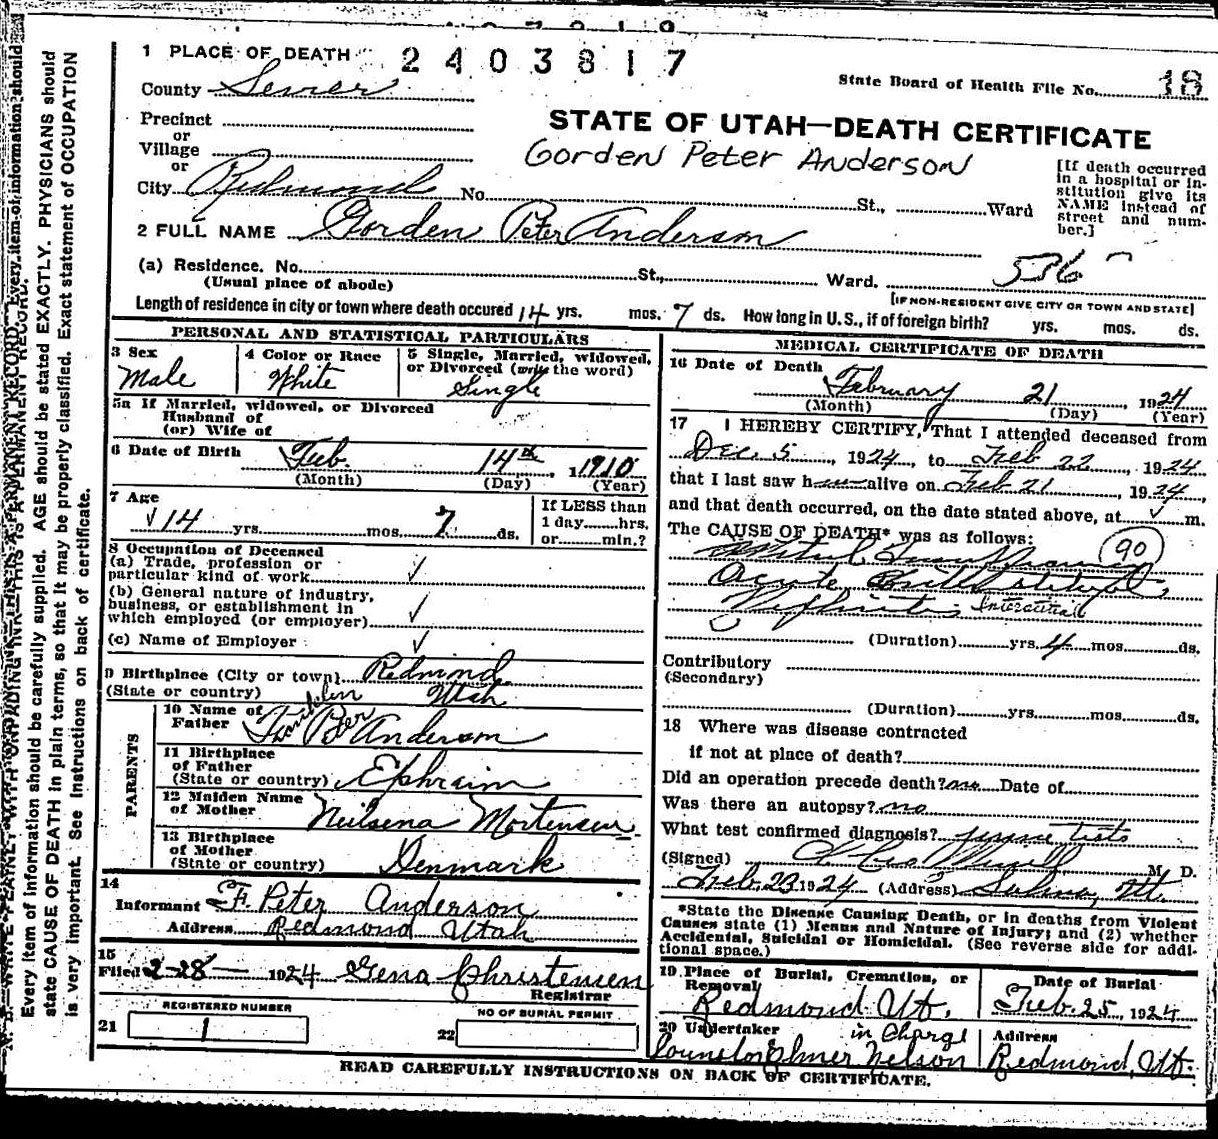 1 PLACE OF DEATH 2403817
State Board of Health File No. 18
County Sevier
STATE OF UTAH—DEATH CERTIFICATE
Precinct
or
Village
or
City Redmond No. St., Ward
Gorden Peter Anderson
[If death occurred in a hospital or institution give its NAME instead of street and number.]
2 FULL NAME Gorden Peter Anderson
(a) Residence. No. St., Ward. 536
(Usual place of abode)
[IF NON-RESIDENT GIVE CITY OR TOWN AND STATE]
Length of residence in city or town where death occured 14 yrs. mos. 7 ds. How long in U.S., if of foreign birth? yrs. mos. ds.
PERSONAL AND STATISTICAL PARTICULARS
3 Sex
Male
4 Color or Race
White
5 Single, Married, widowed, or Divorced (write the word)
Single
5a If Married, widowed, or Divorced
Husband of
(or) Wife of
6 Date of Birth Feb. 14th 1910
(Month) (Day) (Year)
7 Age
14 yrs. mos. 7 ds.
If LESS than
1 day hrs.
or min.?
8 Occupation of Deceased
(a) Trade, profession or
particular kind of work
(b) General nature of industry,
business, or establishment in
which employed (or employer)
(c) Name of Employer
9 Birthplace (City or town) Redmond
(State or country) Utah
PARENTS
10 Name of
Father Anderson
11 Birthplace
of Father
(State or country) Ephraim
12 Maiden Name
of Mother Neilsena Mortensen
13 Birthplace
of Mother
(State or country) Denmark
14
Informant F. Peter Anderson
Address Redmond Utah
15
Filed 2-28- 1924 Gena Christensen
Registrar
REGISTERED NUMBER
21 1
NO OF BURIAL PERMIT
22
MEDICAL CERTIFICATE OF DEATH
16 Date of Death
February 21, 1924
(Month) (Day) (Year)
17 I HEREBY CERTIFY, That I attended deceased from
Dec 5, 1924, to Feb 22, 1924
that I last saw h alive on Feb 21, 1924,
and that death occurred, on the date stated above, at m.
The CAUSE OF DEATH* was as follows:
90
Acute
Nephritis Interstitial
(Duration) yrs. 4 mos. ds.
Contributory
(Secondary)
(Duration) yrs. mos. ds.
18 Where was disease contracted
if not at place of death?
Did an operation precede death? no Date of
Was there an autopsy? no
What test confirmed diagnosis? tests
(Signed) M. D.
Feb. 23 1924 (Address) Salina, Ut.
*State the Disease Causing Death, or in deaths from Violent
Causes state (1) Means and Nature of Injury; and (2) whether
Accidental, Suicidal or Homicidal. (See reverse side for addi-
tional space.)
19 Place of Burial, Cremation, or
Removal
Redmond Ut.
Date of Burial
Feb. 25, 1924
20 Undertaker in Charge
Counselor Elmer Nelson
Address
Redmond, Ut.
READ CAREFULLY INSTRUCTIONS ON BACK OF CERTIFICATE.
Every item of information should be carefully supplied. AGE should be stated EXACTLY. PHYSICIANS should
state CAUSE OF DEATH in plain terms, so that it may be properly classified. Exact statement of OCCUPATION
is very important. See instructions on back of certificate.